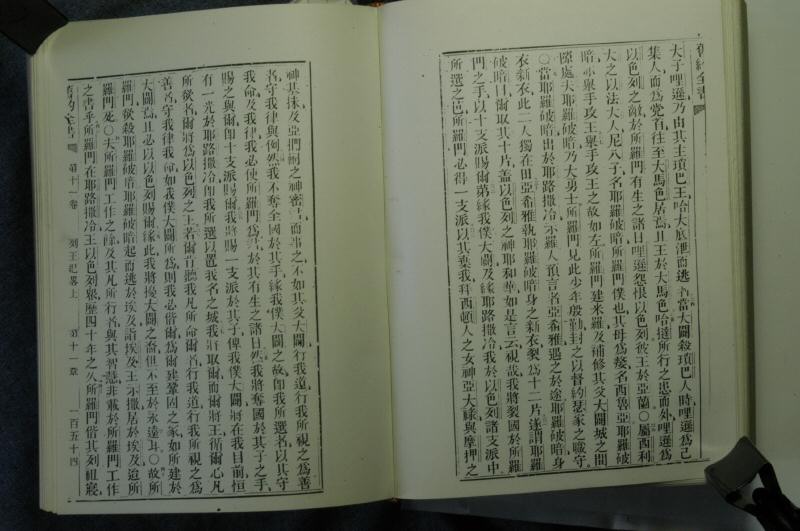 舊約全書
大于哩遜乃由其主瑣巴王哈大底泄而逃者當大闢殺瑣巴人時哩遜爲己
集人而爲黨者往至大馬色居焉且王於大馬色哈撻所行之患而外哩遜爲
以色列之敵於所羅門有生之諸日哩遜怨恨以色列彼王於亞蘭○屬西利
大之以法大人尼八子名耶羅破暗所羅門僕也其母爲嫠名西魯亞耶羅破
暗亦舉手攻王舉手攻王之故如左所羅門建米羅及補修其父大闢城之間
隙處夫耶羅破暗乃大勇士所羅門見此少年殷勤封之以督約瑟家之職守
○當耶羅破暗出於耶路撒冷示羅人預言者亞希雅遇之於途耶羅破暗身
衣新衣此二人獨在田亞希雅執耶羅破暗身之新衣裂爲十二片遂謂耶羅
破暗曰爾取其十片蓋以色列之神耶和華如是言云視哉我將裂國於所羅
門之手以十支派賜爾第緣我僕大闢及緣耶路撒冷我於以色列諸支派中
所選之邑所羅門必得一支派以其棄我拜西頓人之女神亞大祿與摩押之
神其抹及亞捫嗣之神密而事之不如其父大闢行我道行我所視之爲善
者守我律與例然我不奪全國於其手緣我僕大闢之故卽我所選者以其守
我命及我律我必使所羅門爲君於其有生之諸日然我將奪國於其子之手
賜之與爾卽十支派賜爾我將賜一支派於其子俾我僕大闢將在我目前恒
有一光於耶路撒冷卽我所選以置我名之城我將取爾而爾將王循爾心凡
所欲者爾將爲以色列之王若爾肯聽我凡所命爾者行我道行我所視之爲
善者守我律我命如我僕大闢所爲則我必偕爾爲爾建鞏固之家如所建於
大闢焉且必以以色列賜爾緣此我將擾大闢之裔但不至於永遠耳○故所
羅門欲殺耶羅破暗耶羅破暗起而逃於埃及詣埃及王示撒居於埃及迨所
羅門死○夫所羅門工作之餘及其凡所行者與其智慧非載於所羅門工作
之書乎所羅門在耶路撒冷王以色列衆歷四十年之久所羅門偕其列祖寢
舊約全書 第十一卷 列王紀畧上 第十一章 一百五十四